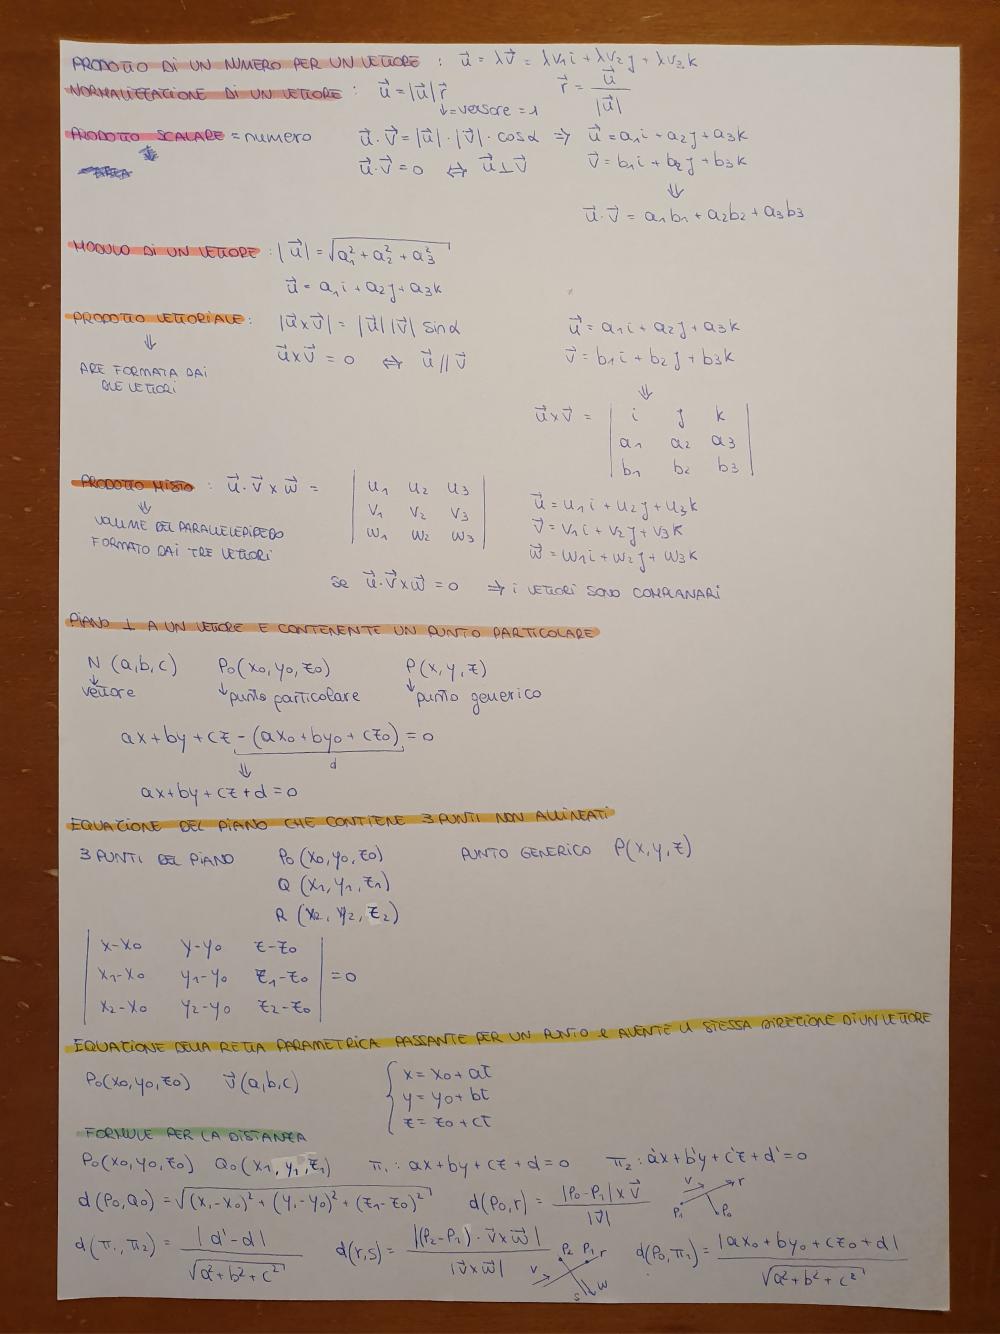 PRODOTTO DI UN NUMERO PER UN VETTORE : u⃗ = λv⃗ = λv₁i + λv₂j + λv₃k
NORMALIZZAZIONE DI UN VETTORE : u⃗ = |u⃗| r⃗    r⃗ = u⃗ / |u⃗|
↓ = versore = 1
PRODOTTO SCALARE = numero    u⃗ · v⃗ = |u⃗| · |v⃗| · cosα ⇒ u⃗ = a₁i + a₂j + a₃k
u⃗ · v⃗ = 0 ⇔ u⃗ ⊥ v⃗    v⃗ = b₁i + b₂j + b₃k
⇓
u⃗ · v⃗ = a₁b₁ + a₂b₂ + a₃b₃
MODULO DI UN VETTORE : |u⃗| = √(a₁² + a₂² + a₃²)
u⃗ = a₁i + a₂j + a₃k
PRODOTTO VETTORIALE : |u⃗ x v⃗| = |u⃗| |v⃗| sinα    u⃗ = a₁i + a₂j + a₃k
⇓    u⃗ x v⃗ = 0 ⇔ u⃗ // v⃗    v⃗ = b₁i + b₂j + b₃k
ARE FORMATA DAI
DUE VETTORI
⇓
u⃗ x v⃗ = | i j k |
| a₁ a₂ a₃ |
| b₁ b₂ b₃ |
PRODOTTO MISTO : u⃗ · v⃗ x w⃗ = | u₁ u₂ u₃ |    u⃗ = u₁i + u₂j + u₃k
⇓    | v₁ v₂ v₃ |    v⃗ = v₁i + v₂j + v₃k
VOLUME DEL PARALLELEPIPEDO    | w₁ w₂ w₃ |    w⃗ = w₁i + w₂j + w₃k
FORMATO DAI TRE VETTORI
se u⃗ · v⃗ x w⃗ = 0 ⇒ i VETTORI SONO COMPLANARI
PIANO ⊥ A UN VETTORE E CONTENENTE UN PUNTO PARTICOLARE
N (a,b,c)    P₀(x₀,y₀,z₀)    P(x,y,z)
↓ vettore    ↓ punto particolare    ↓ punto generico
ax + by + cz - (ax₀ + by₀ + cz₀) = 0
⇓    d
ax + by + cz + d = 0
EQUAZIONE DEL PIANO CHE CONTIENE 3 PUNTI NON ALLINEATI
3 PUNTI DEL PIANO    P₀(x₀,y₀,z₀)    PUNTO GENERICO P(x,y,z)
Q (x₁,y₁,z₁)
R (x₂,y₂,z₂)
| x-x₀    y-y₀    z-z₀ |
| x₁-x₀    y₁-y₀    z₁-z₀ | = 0
| x₂-x₀    y₂-y₀    z₂-z₀ |
EQUAZIONE DELLA RETTA PARAMETRICA PASSANTE PER UN PUNTO e AVENTE LA STESSA DIREZIONE DI UN VETTORE
P₀(x₀,y₀,z₀)    v⃗ (a,b,c)    { x = x₀ + at
y = y₀ + bt
z = z₀ + ct
FORMULE PER LA DISTANZA
P₀(x₀,y₀,z₀)    Q₀(x₁,y₁,z₁)    π₁ : ax + by + cz + d = 0    π₂ : a'x + b'y + c'z + d' = 0
d(P₀,Q₀) = √((x₁-x₀)² + (y₁-y₀)² + (z₁-z₀)²)    d(P₀,r) = |P₀-P₁| x v⃗ / |v⃗|    v r P₁ P₀
d(π₁,π₂) = |d'-d| / √(a²+b²+c²)    d(r,s) = |(P₂-P₁) · v⃗ x w⃗| / |v⃗ x w⃗|    P₂ P₁ r v s w    d(P₀,π₁) = |ax₀ + by₀ + cz₀ + d| / √(a²+b²+c²)